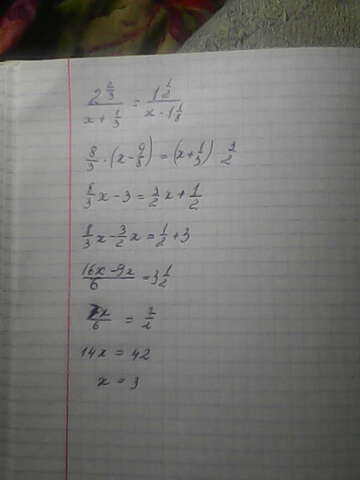 2 2/3 / (x + 1/3) = 1 1/2 / (x - 1 1/8)
8/3 · (x - 9/8) = (x + 1/3) · 3/2
8/3 x - 3 = 3/2 x + 1/2
8/3 x - 3/2 x = 1/2 + 3
(16x - 9x)/6 = 3 1/2
7x/6 = 7/2
14x = 42
x = 3